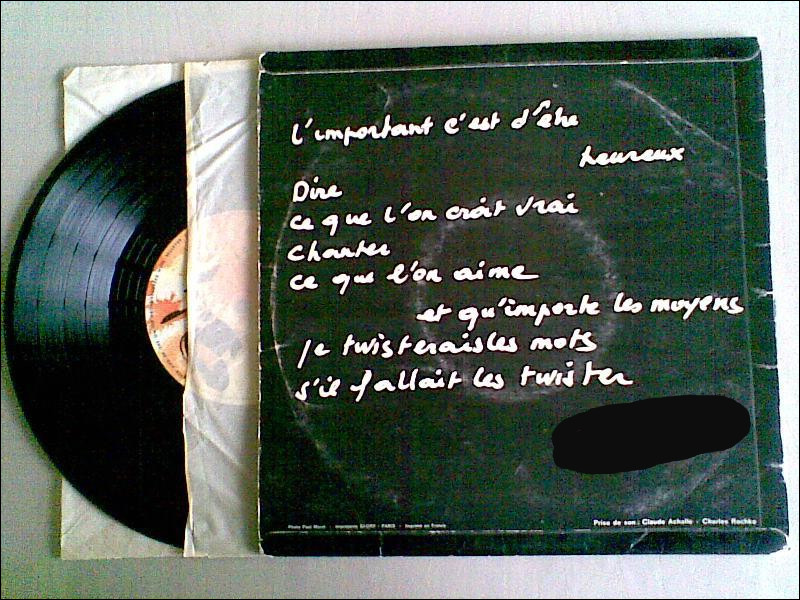 l'important c'est d'être
heureux
Dire
ce que l'on croit vrai
chanter
ce que l'on aime
et qu'importe les moyens
je twisterais les mots
s'il fallait les twister
Photo Paul Morel - Imprimerie - PARIS - Imprimé en France
Prise de son : Claude Achallé - Charles Rochko